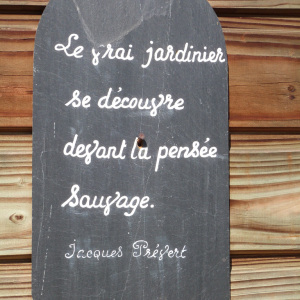 Le vrai jardinier
se découvre
devant la pensée
sauvage.
Jacques Prévert